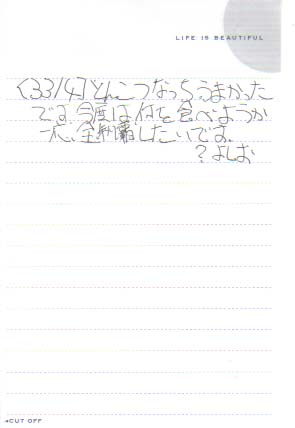 LIFE IS BEAUTIFUL
<33/47とんこつなっちうまかった
です。今度は何を食べようか
一応、全制覇したいです。
?よしお
◂CUT OFF